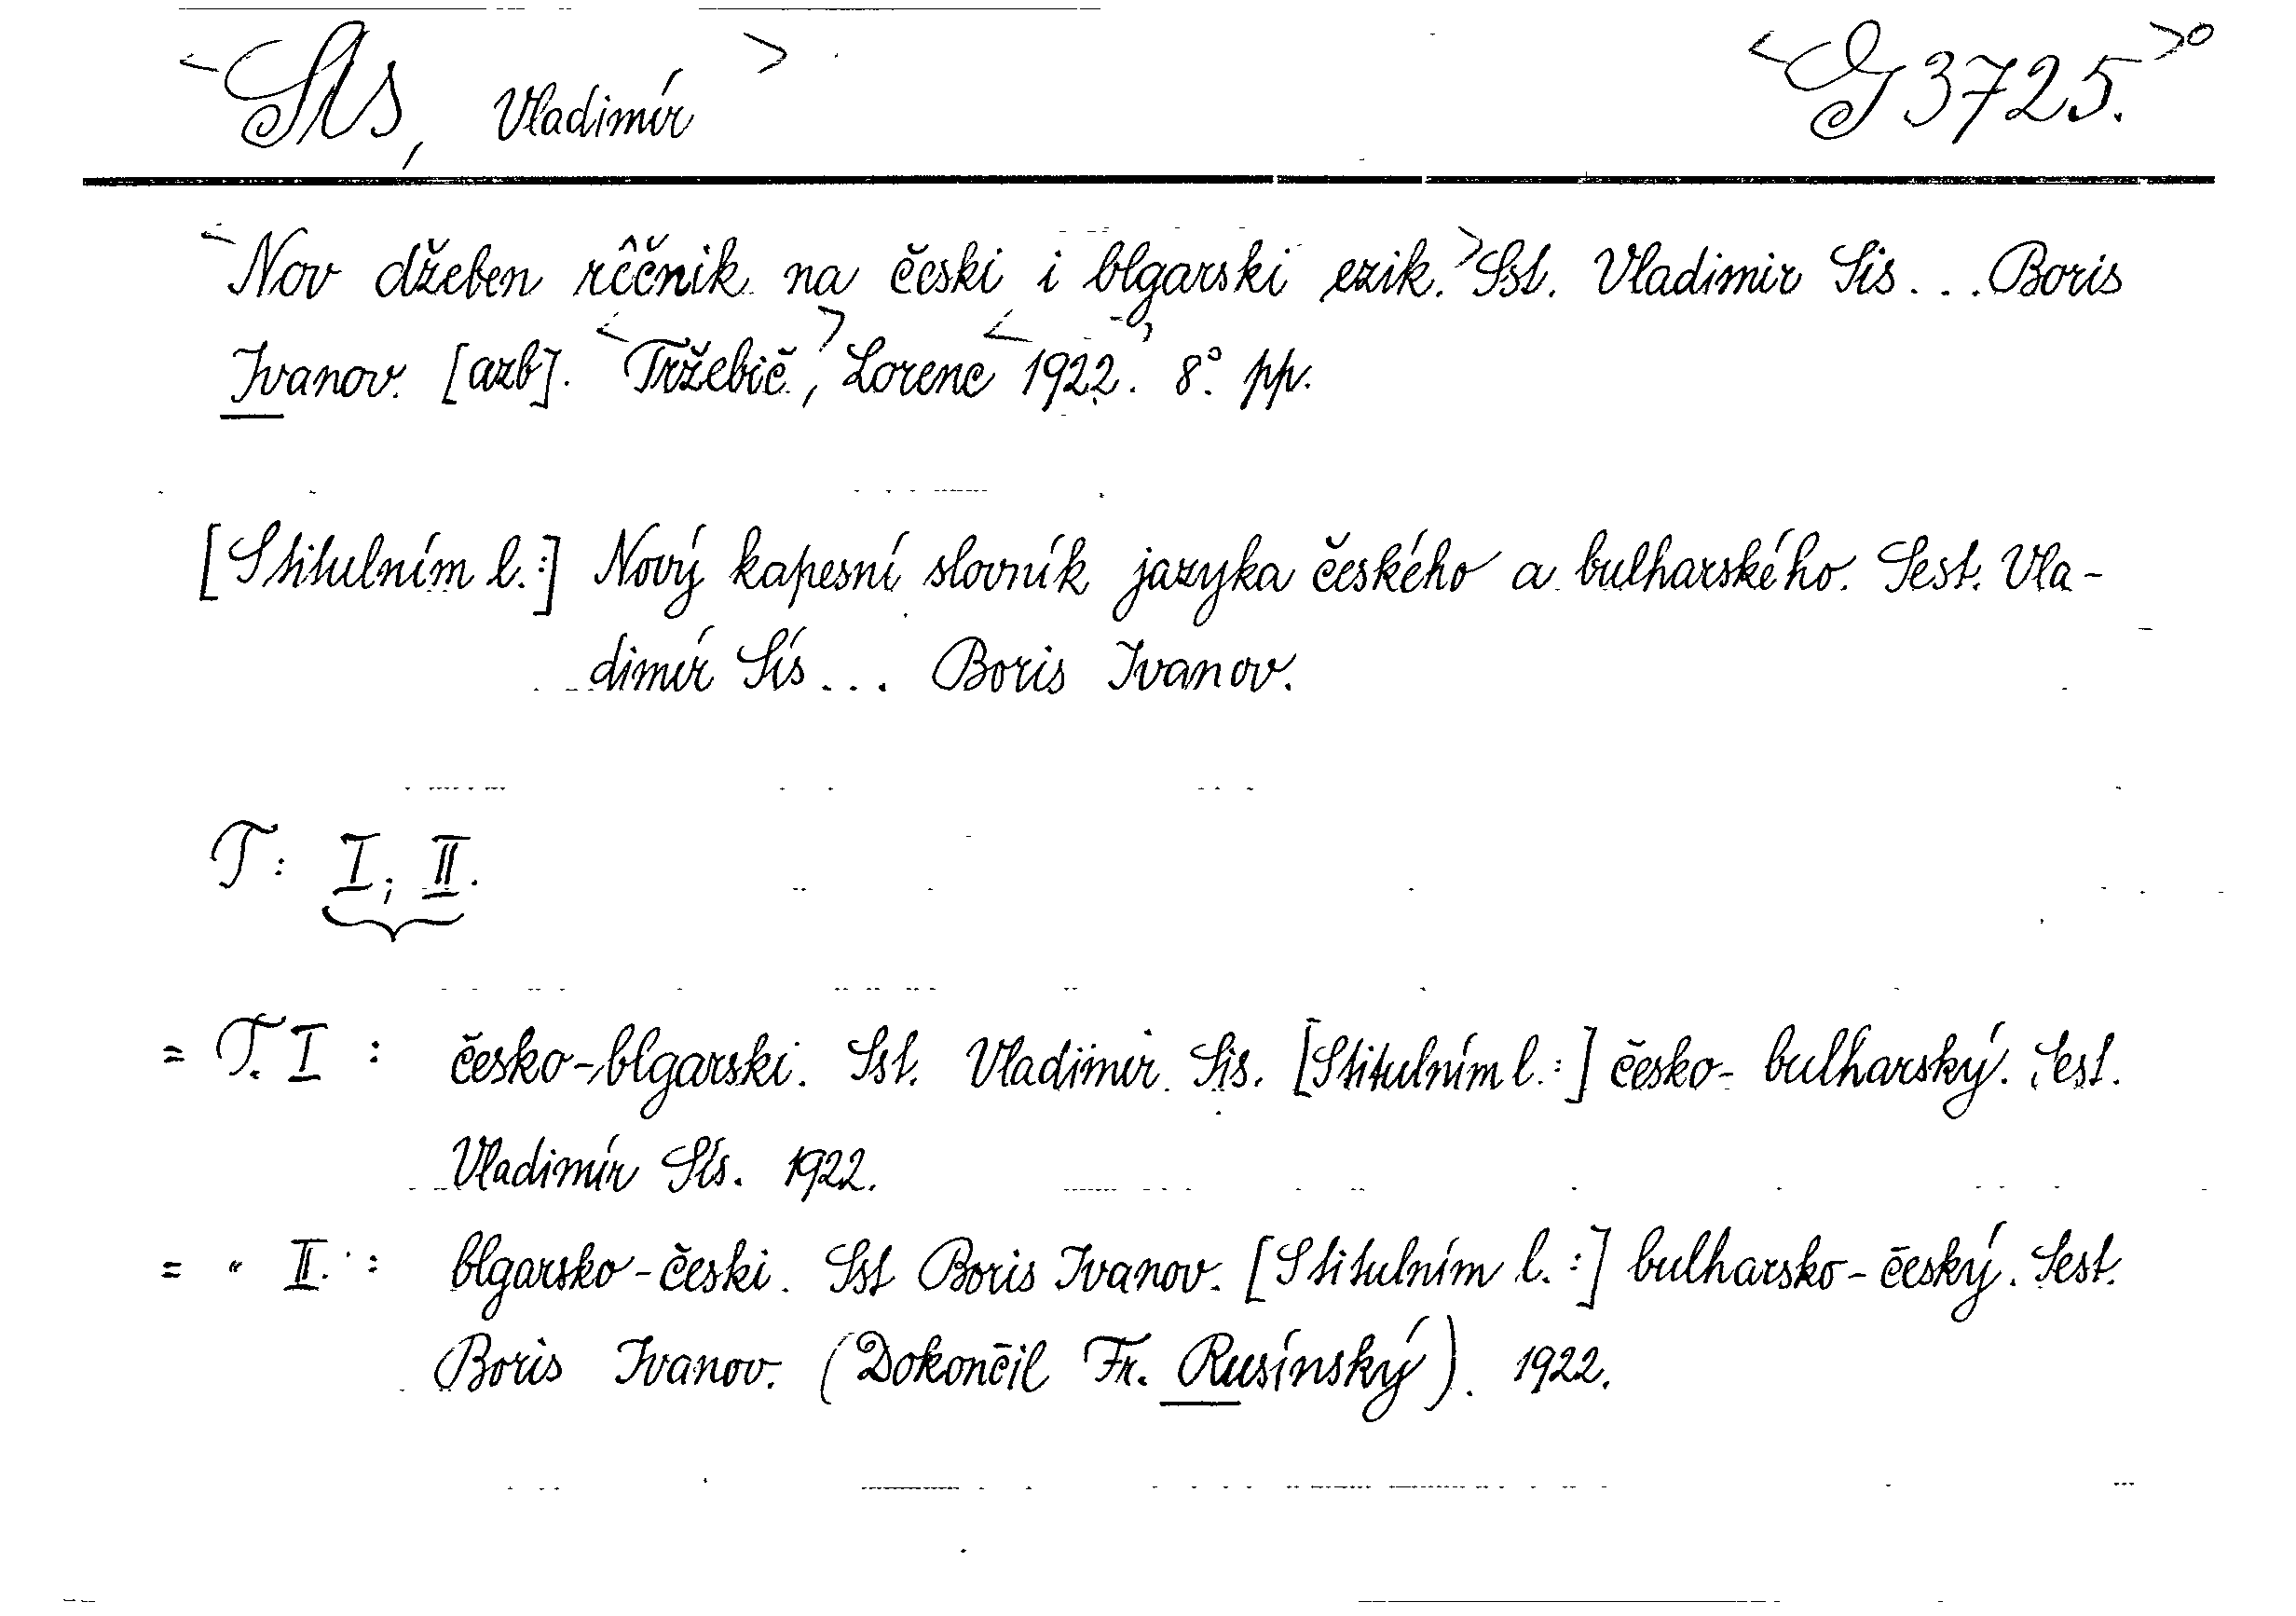 <Sís, Vladimír> <G 3725.>°
<Nov džeben rêčnik na česki i blgarski ezik.> Sst. Vladimir Sis... Boris
Ivanov. [azb]. <Tržebič,> Lorenc <1922>. 8°. pp.
[S titulním l.:] Nový kapesní slovník jazyka českého a bulharského. Sest. Vla-
dimír Sís... Boris Ivanov.
T: I; II.
= T. I : česko-blgarski. Sst. Vladimir Sis. [S titulním l.:] česko-bulharský. Sest.
Vladimír Sís. 1922.
= " II. : blgarsko-česki. Sst Boris Ivanov. [S titulním l.:] bulharsko-český. Sest.
Boris Ivanov. (Dokončil Fr. Rusínský). 1922.